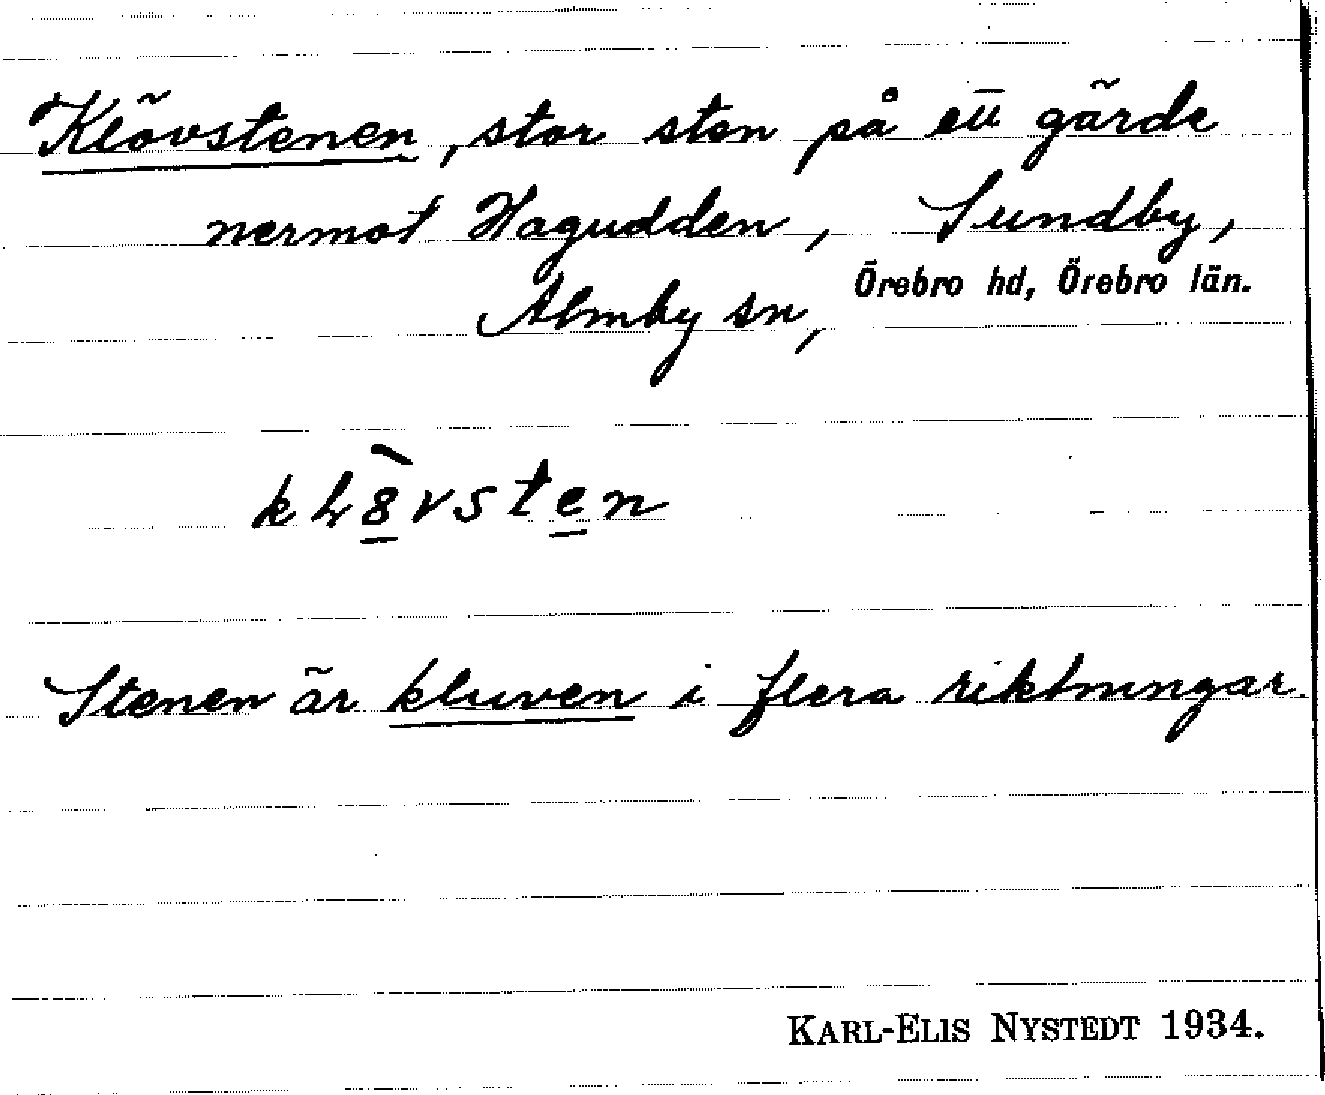 Klövstenen, stor sten på ett gärde
nermot Hagudden, Sundby,
Almby sn, Örebro hd, Örebro län.
Stenen är kluven i flera riktningar.
KARL-ELIS NYSTEDT 1934.